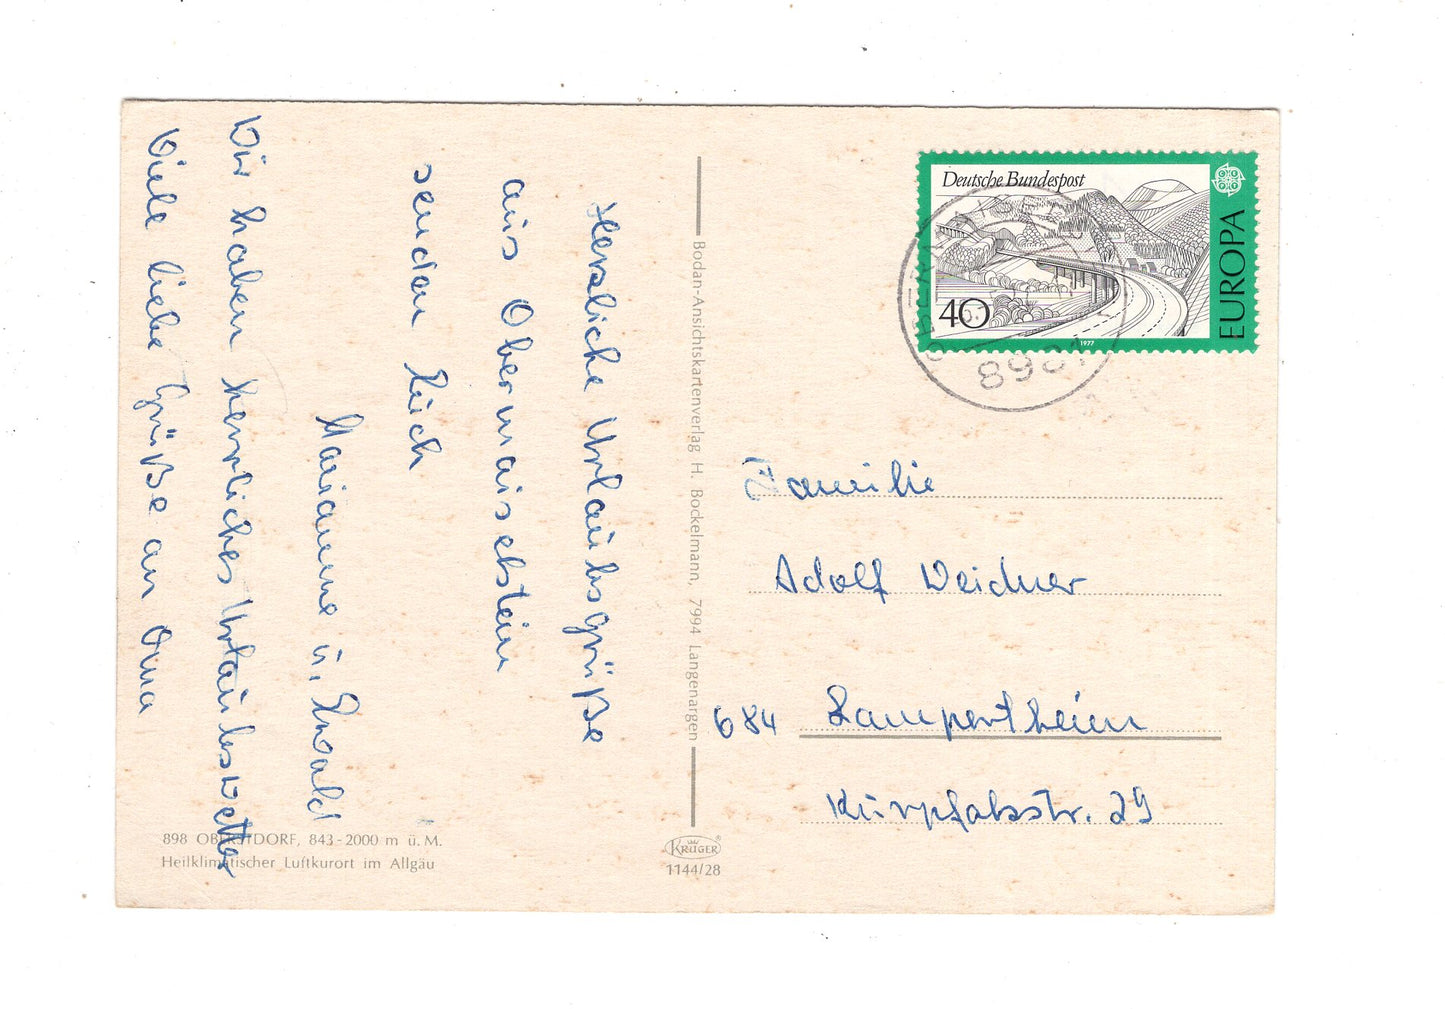 Herzliche Urlaubsgrüße
aus Obermaiselstein
senden Euch
Marianne u. Ewald
Wir haben herrliches Urlaubswetter
Viele liebe Grüße an Oma
898 OBERSTDORF, 843-2000 m ü. M.
Heilklimatischer Luftkurort im Allgäu
Bodan-Ansichtskartenverlag H. Bockelmann, 7994 Langenargen
KRÜGER®
1144/28
Deutsche Bundespost
40
1977
EUROPA
8981
Familie
Adolf Weidner
684 Lampertheim
Kurpfalzstr. 29